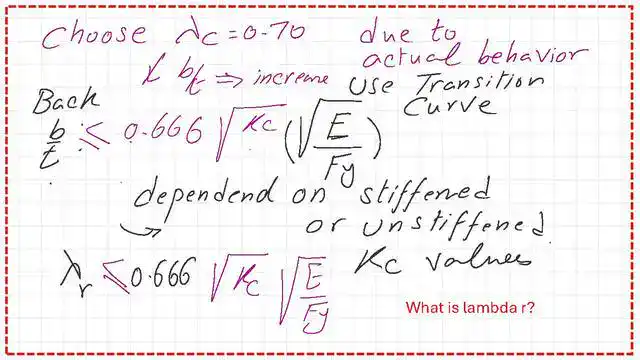 Choose λc = 0.70 due to
actual behavior
b/t ⇒ increase Use Transition
Curve
Back
b/t ≤ 0.666 √Kc (√E/Fy)
dependend on stiffened
or unstiffened
Kc values
λr ≤ 0.666 √Kc √E/Fy
What is lambda r?